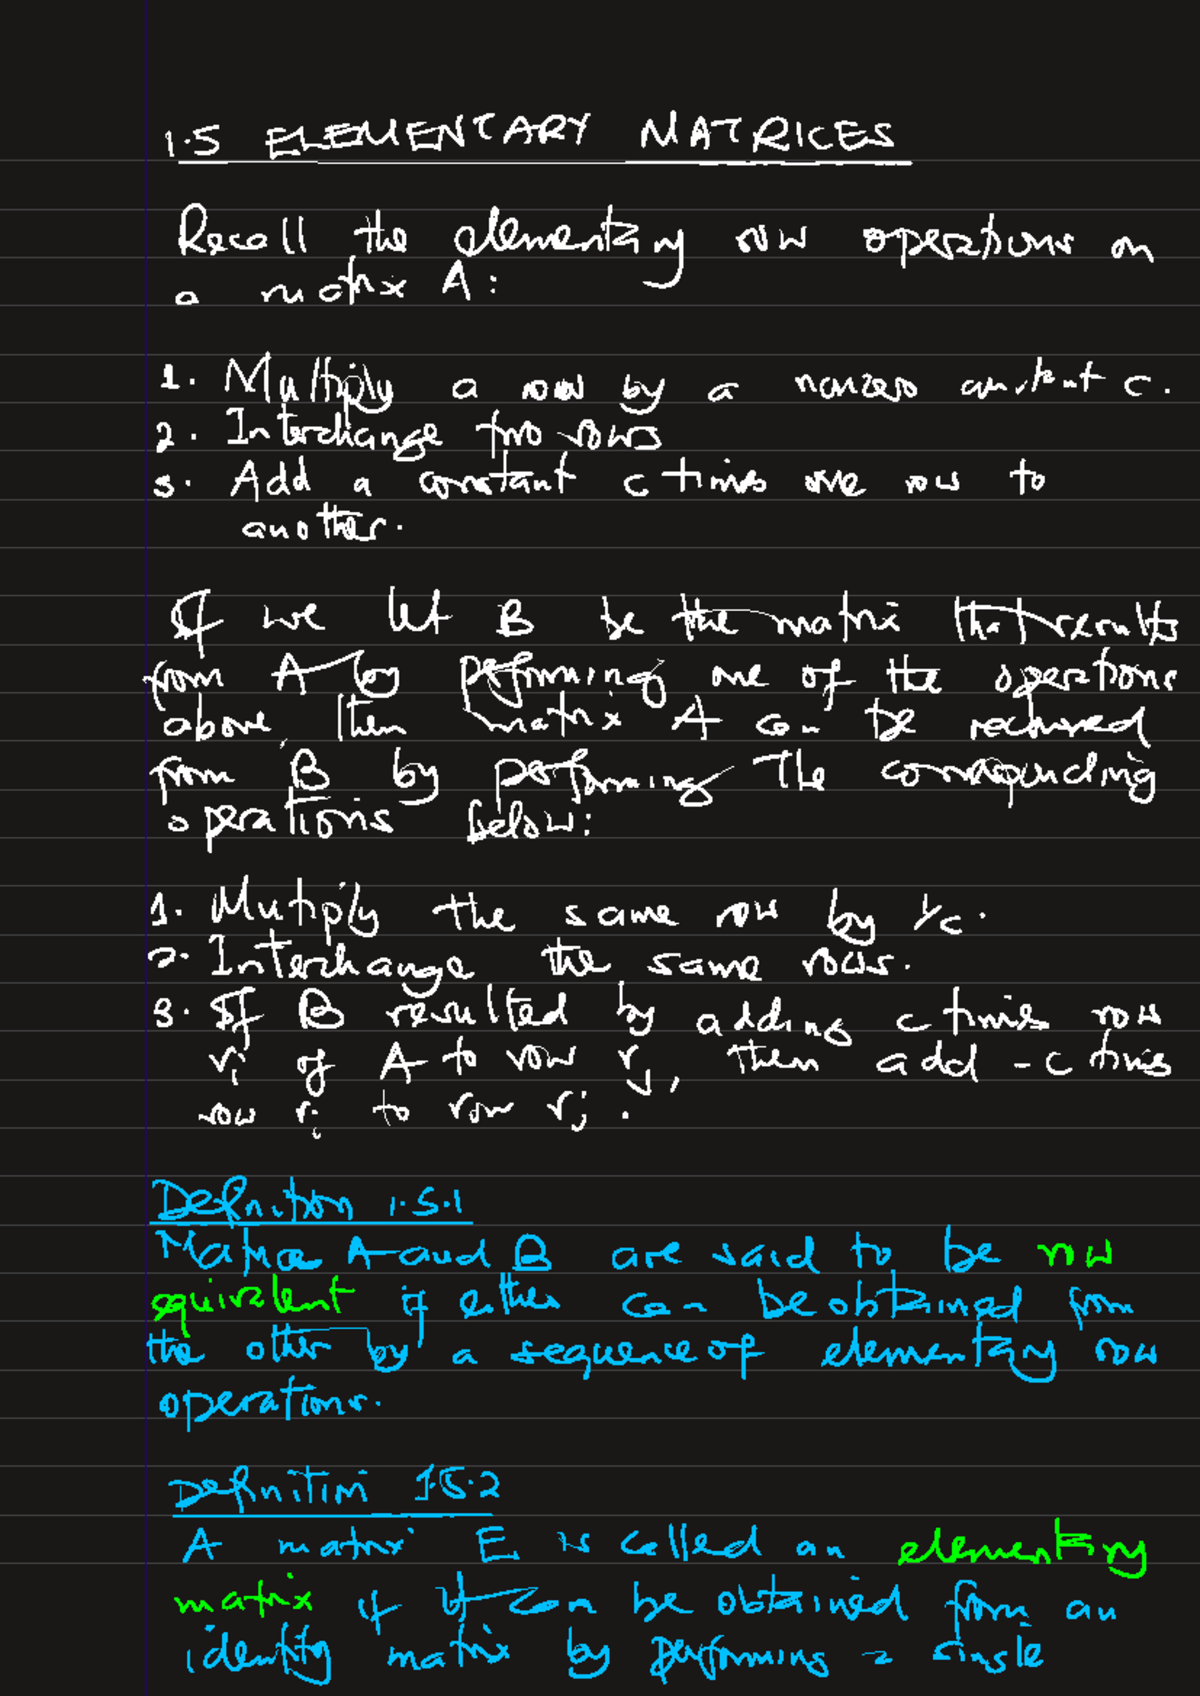 1.5 ELEMENTARY MATRICES
Recall the elementary row operations on
a matrix A:
1. Multiply a row by a nonzero constant c.
2. Interchange two rows
3. Add a constant c times one row to
another.
If we let B be the matrix that results
from A by performing one of the operations
above, then matrix A can be recovered
from B by performing the corresponding
operations below:
1. Mutiply the same row by 1/c.
2. Interchange the same rows.
3. If B resulted by adding c times row
ri of A to row rj, then add -c times
row ri to row rj.
Definition 1.5.1
Matrices A and B are said to be row
equivalent if either can be obtained from
the other by a sequence of elementary row
operations.
Definition 1.5.2
A matrix E is called an elementary
matrix if it can be obtained from an
identity matrix by performing a single